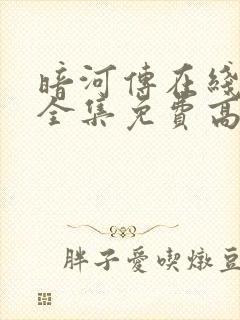 暗河傳在綫
全集免費高
胖子愛喫燉豆